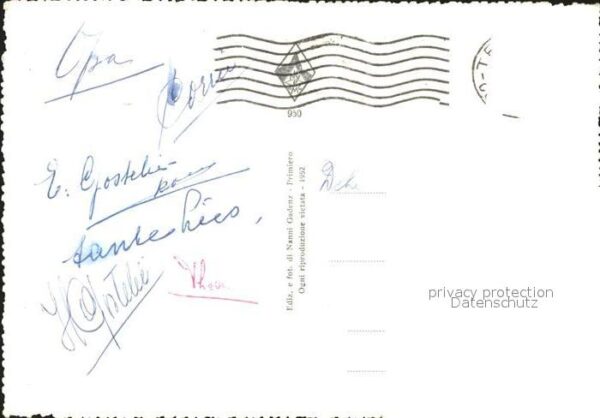 Opa
E. Gostelie
tante Lies,
H Gostelie
Thea
950
Ediz. e fot. di Nanni Gadenz - Primiero
Ogni riproduzione vietata - 1952
privacy protection
Datenschutz